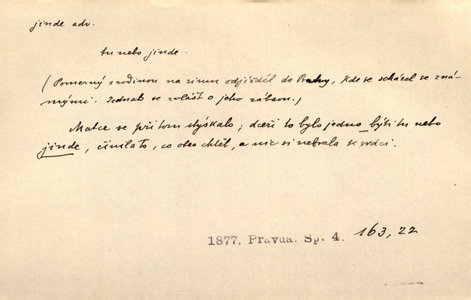 jinde adv.
tu nebo jinde.
(Pomerný s rodinou na zimu odjížděl do Prahy, kde se scházel se zná-
mými. Jednalo se zvlášť o jeho zábavu.)
Matce se při tom stýskalo; dceři to bylo jedno býti tu nebo
jinde, činila to, co otec chtěl, a nic si nebrala k srdci.
1877, Pravda. Sp. 4. 163, 22